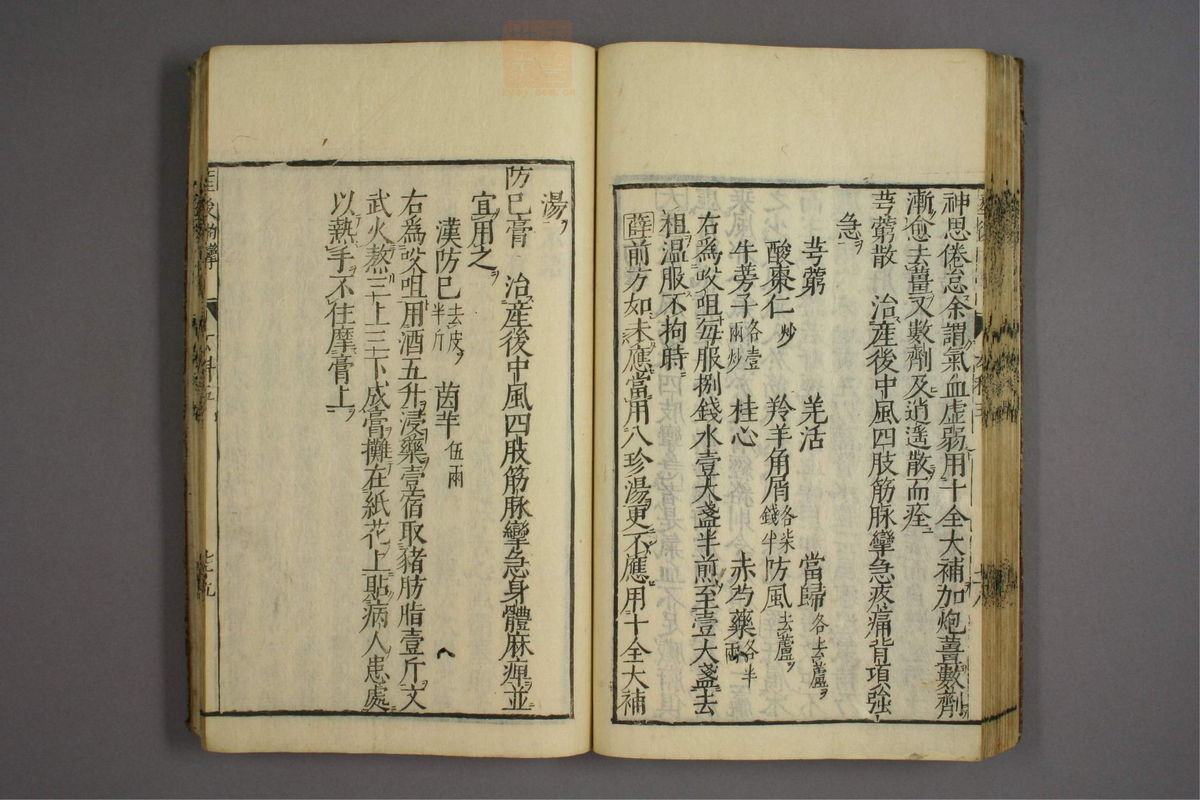 神思倦怠余謂氣血虚弱用十全大補加炮薑數劑
漸愈去薑又數劑及逍遥散而痊
芎藭散　治産後中風四肢筋脉攣急疼痛背項強
急
芎藭　羌活　當歸各去蘆
酸棗仁炒　羚羊角屑各柒錢半　防風去蘆
牛蒡子各壹兩炒　桂心　赤芍藥各半兩
右爲㕮咀每服捌錢水壹大盞半煎至壹大盞去
粗温服不拘時
薛前方如未應當用八珍湯更不應用十全大補
湯
防巳膏　治産後中風四肢筋脉攣急身體麻痺並
宜用之
漢防巳去皮半斤　茵芋伍兩
右爲㕮咀用酒五升浸藥壹宿取豬肪脂壹斤文
武火熬三上三下成膏攤在紙花上貼病人患處
以熱手不住摩膏上